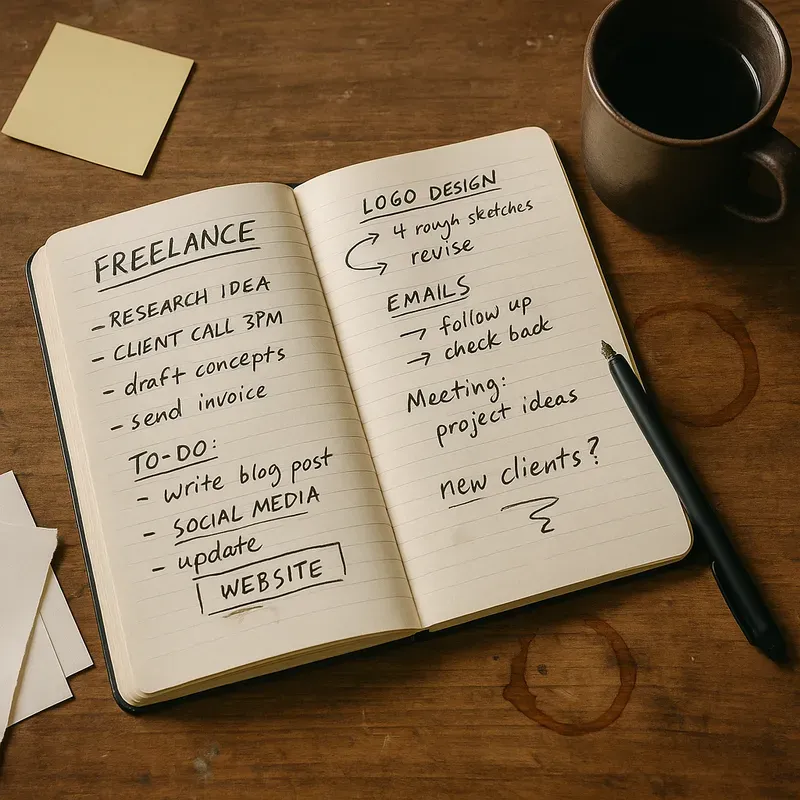 FREELANCE
- RESEARCH IDEA
- CLIENT CALL 3PM
- draft concepts
- send invoice
TO-DO:
- write blog post
- SOCIAL MEDIA
- update
WEBSITE
LOGO DESIGN
→ 4 rough sketches
→ revise
EMAILS
→ follow up
→ check back
Meeting:
project ideas
new clients?